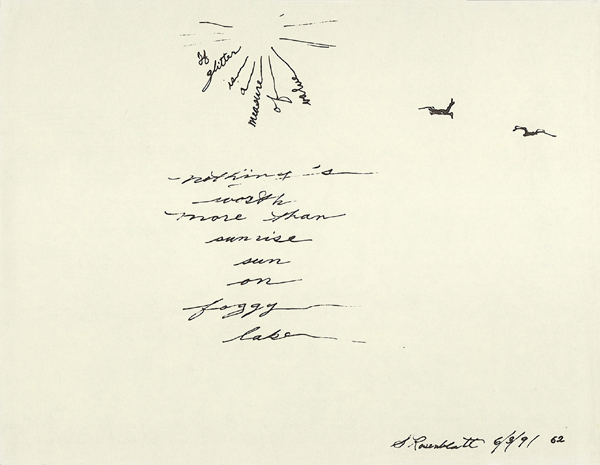 If
glitter
is
a
measure
of
value
nothing is
worth
more than
sunrise
sun
on
foggy
lake
S Rosenblatt 6/3/91 62